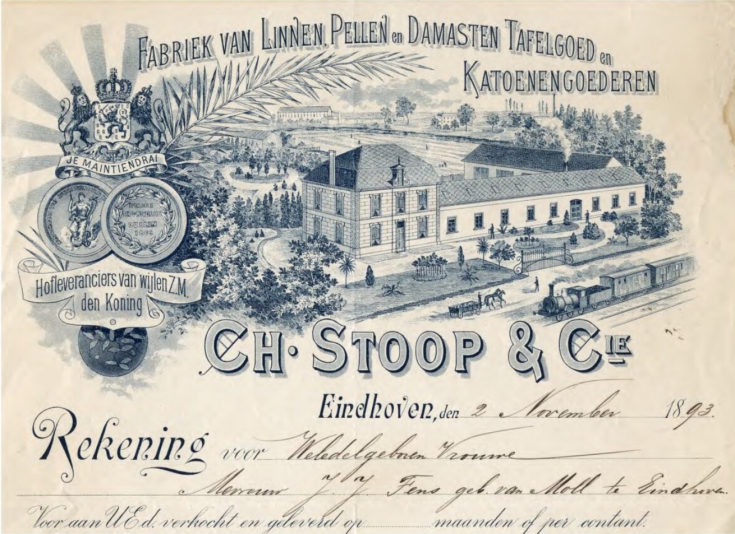 FABRIEK VAN LINNEN, PELLEN en DAMASTEN TAFELGOED en
KATOENENGOEDEREN
JE MAINTIENDRAI
Hofleveranciers van wijlen Z.M.
den Koning
CH. STOOP & CIE
Eindhoven, den 2 November 1893.
Rekening voor Weledelgeboren Vrouwe
Mevrouw J. J. Fens geb. van Moll te Eindhoven.
Voor aan UEd. verkocht en geleverd op maanden of per contant.